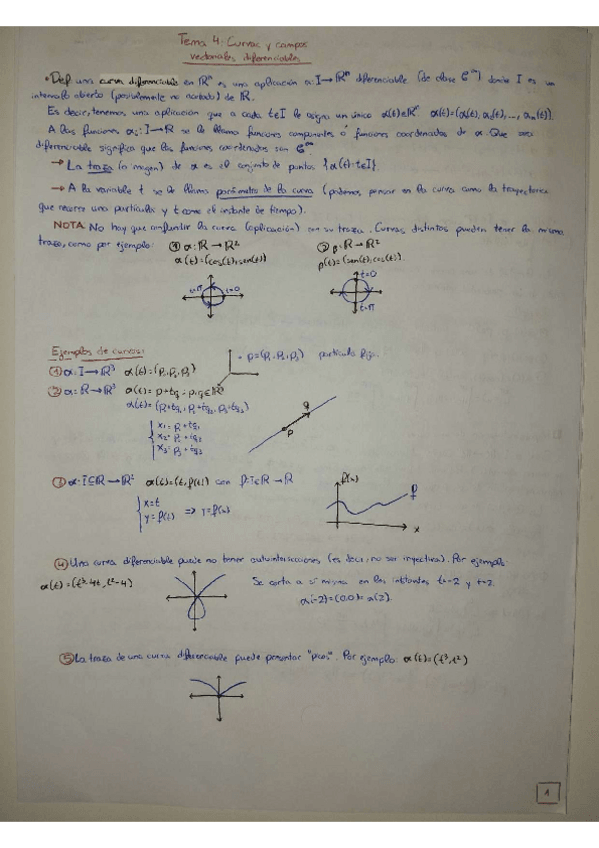 Tema 4: Curvas y campos
vectoriales diferenciables
• Def una curva diferenciable en ℝⁿ es una aplicación α: I→ℝⁿ diferenciable (de clase C^∞) donde I es un
intervalo abierto (posiblemente no acotado) de ℝ.
Es decir, tenemos una aplicación que a cada t∈I le asigna un único α(t)∈ℝⁿ α(t)=(α₁(t), α₂(t), ..., αₙ(t)).
A las funciones αᵢ: I→ℝ se le llama funciones componentes ó funciones coordenadas de α. Que sea
diferenciable significa que las funciones coordenadas son C^∞.
→ La traza (o imagen) de α es el conjunto de puntos {α(t): t∈I}.
→ A la variable t se le llama parámetro de la curva (podemos pensar en la curva como la trayectoria
que recorre una partícula y t como el instante de tiempo).
NOTA: No hay que confundir la curva (aplicación) con su traza. Curvas distintas pueden tener la misma
traza, como por ejemplo: ① α: ℝ→ℝ² ② β: ℝ→ℝ²
α(t)=(cos(t), sen(t)) β(t)=(sen(t), cos(t)).
t=π t=0 t=0 t=π
Ejemplos de curvas:
① α: I→ℝ³ α(t)=(p₁, p₂, p₃) • p=(p₁, p₂, p₃) partícula fija.
② α: ℝ→ℝ³ α(t)=p+tq; p,q∈ℝ³
α(t)=(p₁+tq₁, p₂+tq₂, p₃+tq₃)
x₁=p₁+tq₁
x₂=p₂+tq₂
x₃=p₃+tq₃
p q
③ α: I⊆ℝ→ℝ² α(t)=(t, f(t)) con f: I⊆ℝ→ℝ
x=t
y=f(t) => y=f(x)
f(x) f x
④ Una curva diferenciable puede no tener autointersecciones (es decir, no ser inyectiva). Por ejemplo:
α(t)=(t³-4t, t²-4) Se corta a sí misma en los instantes t=-2 y t=2.
α(-2)=(0,0)=α(2).
⑤ La traza de una curva diferenciable puede presentar "picos". Por ejemplo: α(t)=(t³, t²)
1